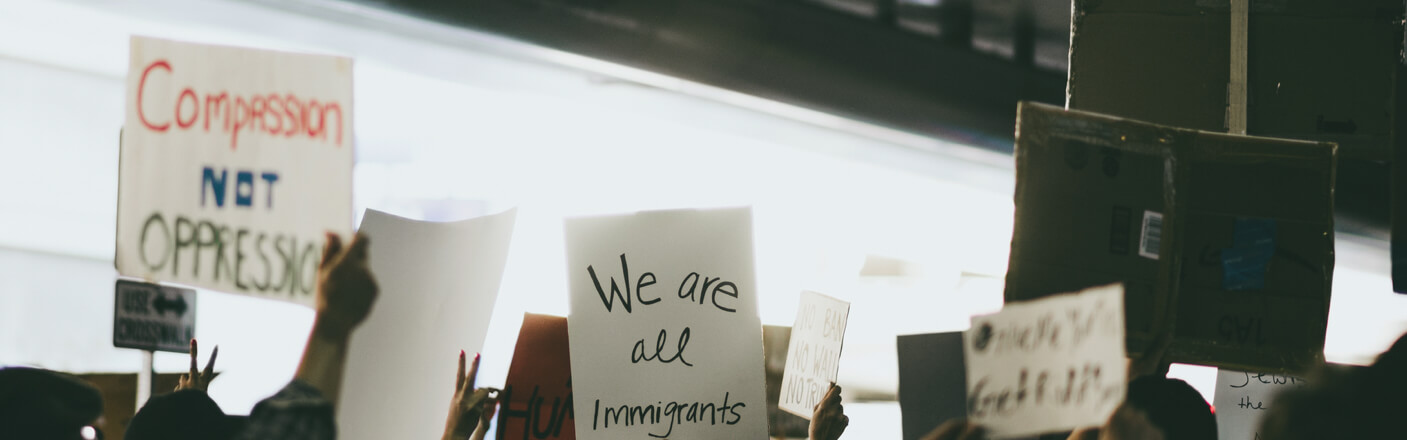 Compassion
NOT
OPPRESSION
USE
CROSSWALK
We are
all
Immigrants
NO BAN
NO WALL
HUM
the